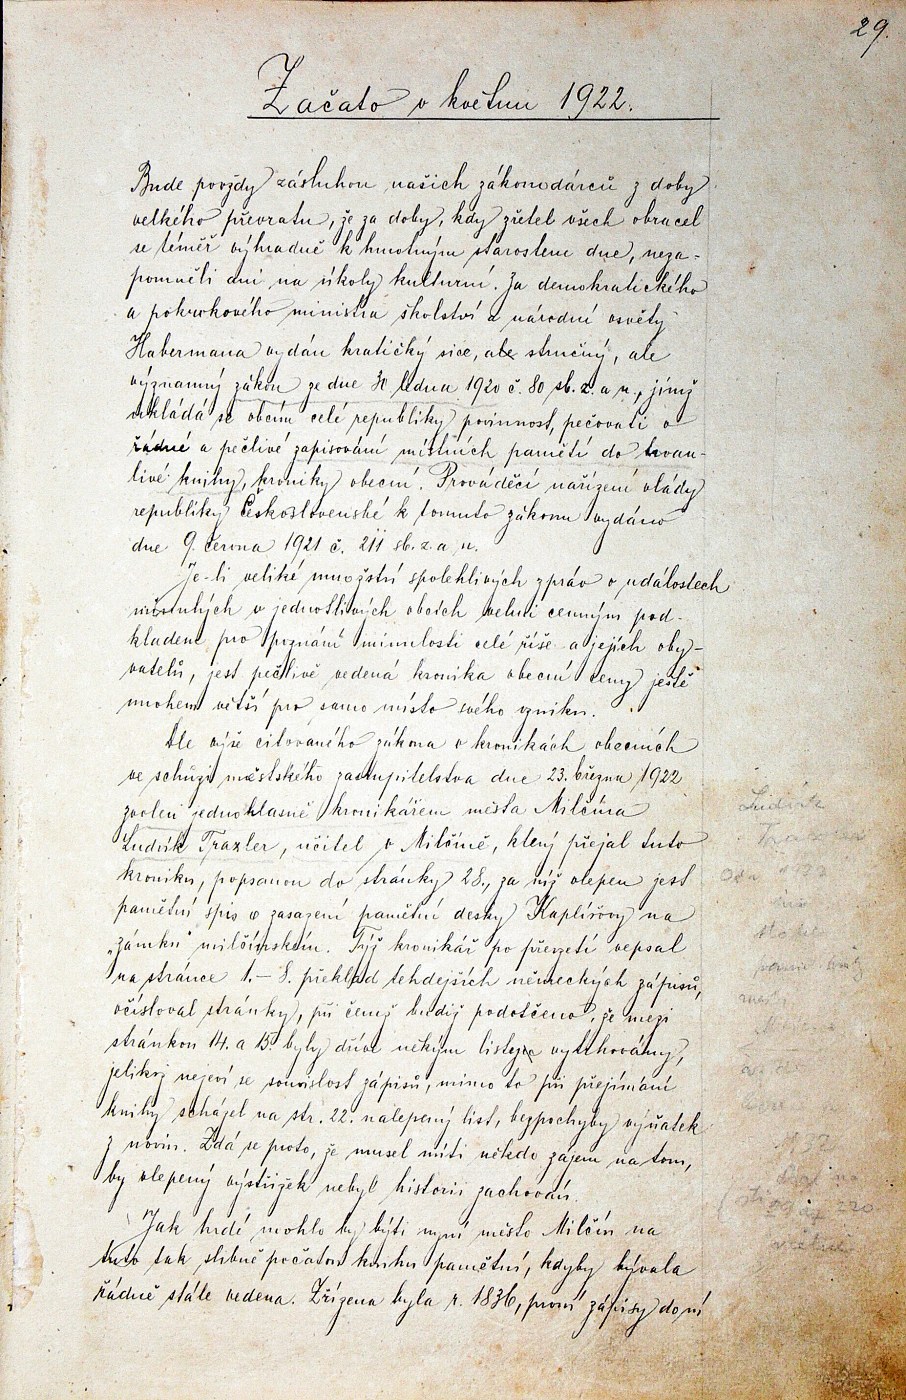 29.
Začato v květnu 1922.
Bude povždy zásluhou našich zákonodárců z doby
velkého převratu, že za doby, kdy zřetel všech obracel
se téměř výhradně k hmotným starostem dne, neza-
pomněli ani na úkoly kulturní. Za demokratického
a pokrokového ministra školství a národní osvěty
Habermana vydán kratičký sice, ale stručný, ale
významný zákon ze dne 30 ledna 1920 č. 80 sb. z. a n., jímž
ukládá se obcím celé republiky povinnost, pečovati o
řádné a pečlivé zapisování místních pamětí do trvan-
livé knihy, kroniky obecní. Prováděcí nařízení vlády
republiky Československé k tomuto zákonu vydáno
dne 9. června 1921 č. 211 sb. z. a n.
Je-li veliké množství spolehlivých zpráv o událostech
minulých v jednotlivých obcích velmi cenným pod-
kladem pro poznání minulosti celé říše a jejích oby-
vatelů, jest pečlivě vedená kronika obecní ceny ještě
mnohem větší pro samo místo svého vzniku.
Dle výše citovaného zákona o kronikách obecních
ve schůzi městského zastupitelstva dne 23. března 1922
zvolen jednohlasně kronikářem města Milčína
Ludvík Traxler, učitel v Milčíně, který přejal tuto
kroniku, popsanou do stránky 28., za níž vlepen jest
pamětní spis o zasazení pamětní desky Kaplířovy na
„zámku" milčínském. Týž kronikář po převzetí vepsal
na stránce 1.– 8. překlad tehdejších německých zápisů,
očísloval stránky, při čemž budiž podotčeno, že mezi
stránkou 14. a 15. byly dříve někým listy vytrhovány,
jelikož nejeví se souvislost zápisů, mimo to při přejímání
knihy scházel na str. 22. nalepený list, bezpochyby výňatek
z novin. Zdá se proto, že musel míti někdo zájem na tom,
by vlepený výstřižek nebyl historii zachován.
Jak hrdé mohlo by býti nyní město Milčín na
tuto tak slibně počatou knihu pamětní, kdyby bývala
řádně stále vedena. Zřízena byla r. 1836, první zápisy do ní
Ludvík
1922